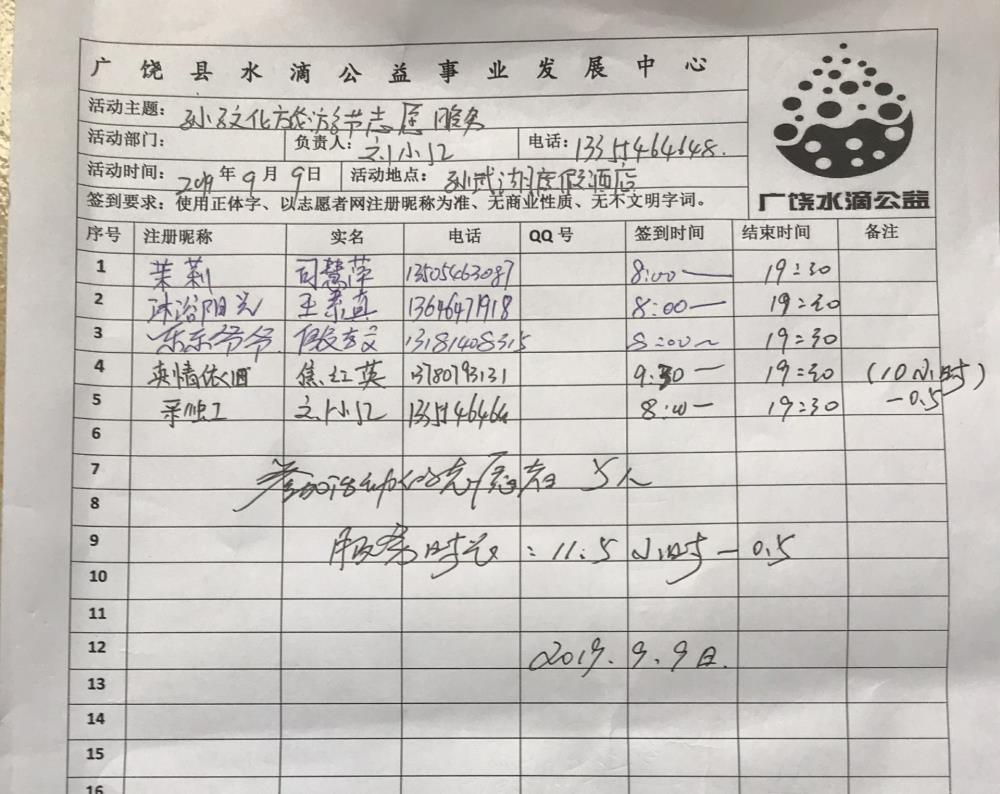 广饶县水滴公益事业发展中心
活动主题: 孙子文化旅游节志愿服务
活动部门: 负责人: 刘小江 电话: 13351464648.
活动时间: 2019年9月9日 活动地点: 孙武湖度假酒店
签到要求: 使用正体字、以志愿者网注册昵称为准、无商业性质、无不文明字词。
广饶水滴公益
序号 注册昵称 实名 电话 QQ号 签到时间 结束时间 备注
1 茉莉 司慧萍 13505463087 8:00— 19:30
2 沐浴阳光 王素直 13646471918 8:00— 19:30
3 东东爷爷 13181408315 8:00~ 19:30
4 真情依旧 焦红英 13780793131 9:30— 19:30 (10小时)
5 刘小江 133514646 8:00— 19:30 -0.5
6
7 参加活动的志愿者 5人
8
9 服务时长: 11.5小时-0.5
10
11
12 2019.9.9日.
13
14
15
16